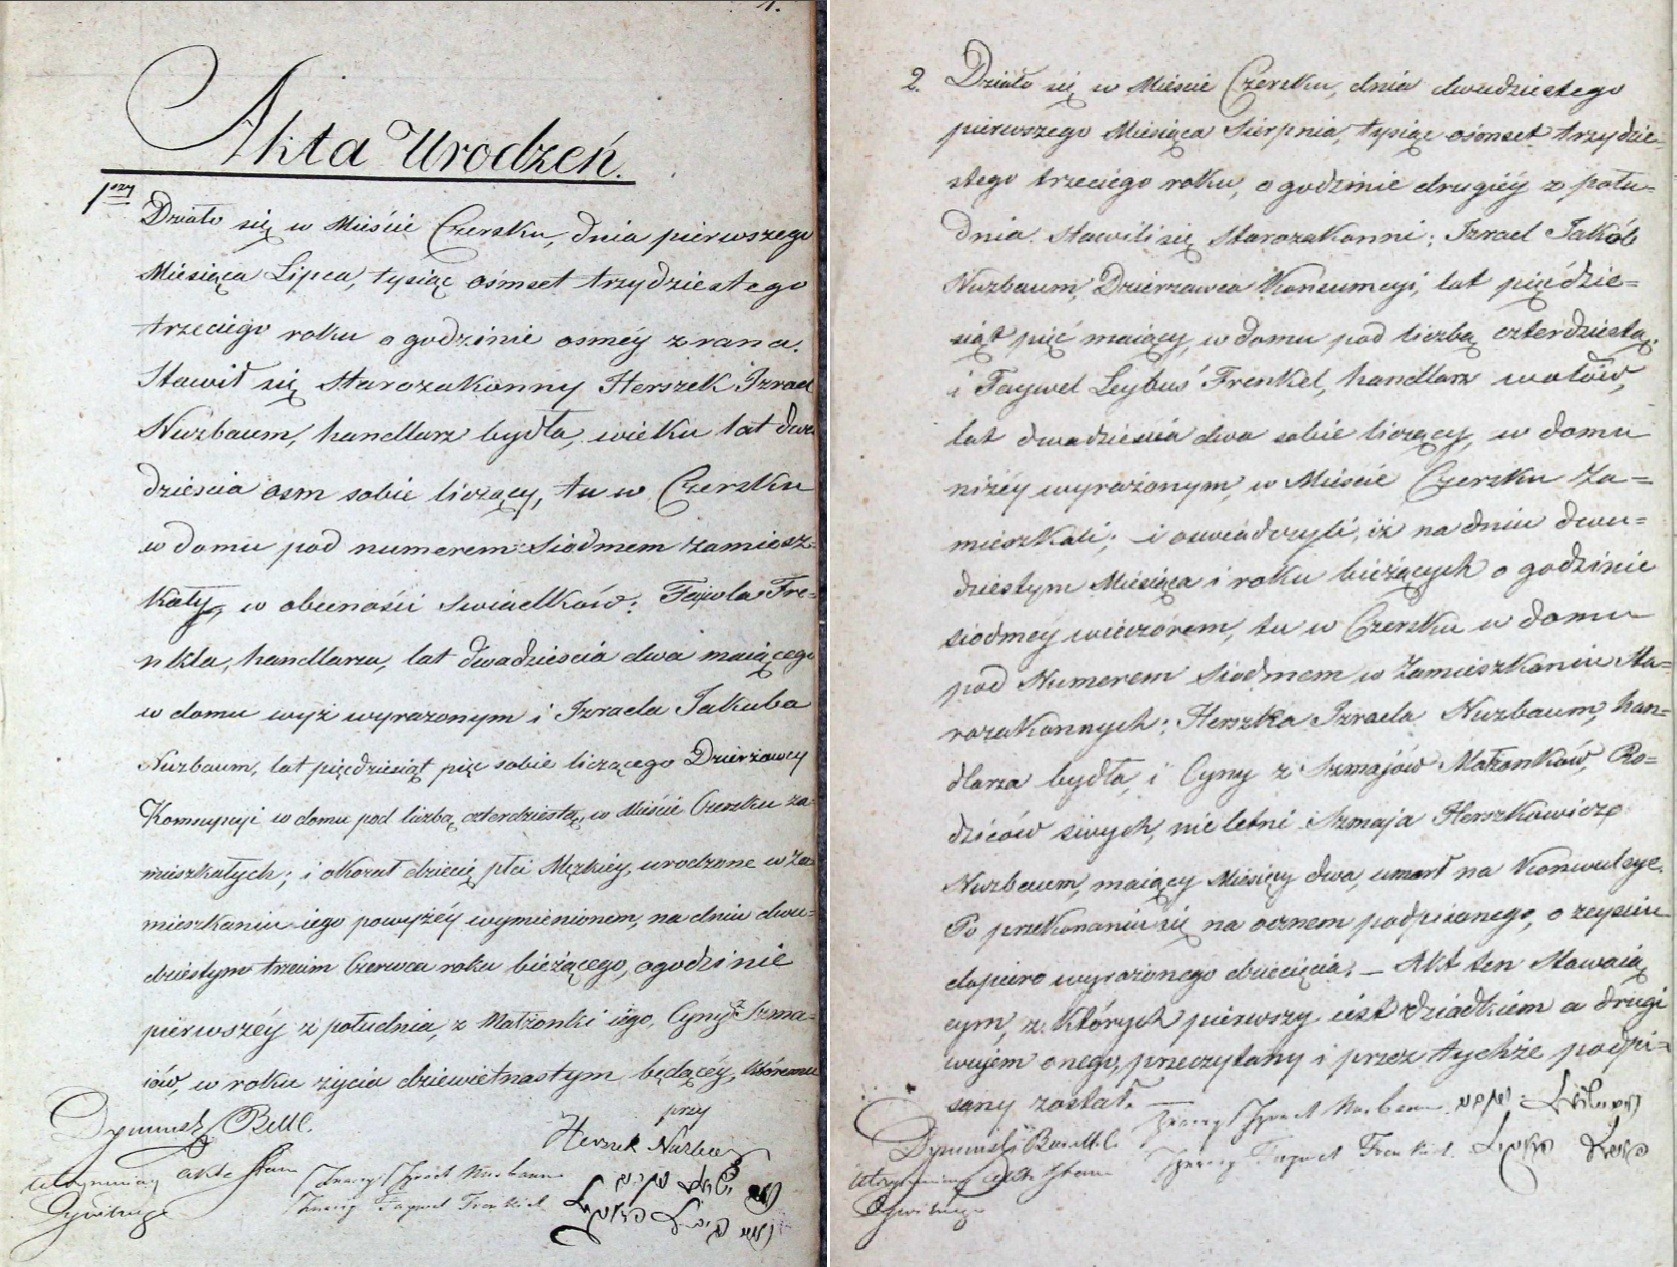 1.
Akta Urodzeń.
1szy
Działo się w Mieście Czersku, dnia pierwszego
Miesiąca Lipca, tysiąc ośmset trzydziestego
trzeciego roku o godzinie osméy zrana.
Stawił się starozakonny Herszek Izrael
Nuzbaum, handlarz bydła, wieku lat dwa
dzieścia osm sobie liczący, tu w Czersku
w domu pod numerem siódmem zamiesz=
kały, w obecności swiadków: Fajwla Fre=
nkla, handlarza, lat dwadzieścia dwa maiącego
w domu wyż wyrazonym i Izraela Jakuba
Nuzbaum, lat pięćdziesiąt pięc sobie liczącego Dzierżawcy
Komsupcyi w domu pod liczbą czterdziestą, w Mieście Czersku za
mieszkałych; i okazał dziecię płci Męzkiey, urodzone w Za
mieszkaniu iego powyżéy wymienionem, na dniu dwu=
dziestym trzecim Czerwca roku bieżącego, o godzinie
pierwszéy z południa, z Małżonki iégo, Cyny z Szma=
iów, w roku życia dziewietnastym będącéy, któremu
przy
Dyonizy
Herszek Nuzbaum
akta stanu
Cywilnego
Izrael Nuzbaum
Faywel Frenkiel
2. Działo się w Mieście Czersku, dnia dwudziestego
pierwszego Miesiąca Sierpnia, tysiąc ośmset trzydzie=
stego trzeciego roku, o godzinie drugiéy z połu=
dnia. Stawili się Starozakonni: Izrael Jakób
Nuzbaum, Dzierzawca Konsumcyi, lat pięćdzie=
siąt pięć maiący, w domu pod liczbą czterdziestą;
i Faywel Leybuś Frenkel, handlarz wołów,
lat dwadzieścia dwa sobie liczący, w domu
niżéy wyrażonym, w Mieście Czersku Za=
mieszkali; i oswiadczyli, iż na dniu dwu=
dziestym Miesiąca i roku bieżących o godzinie
siódmey wieczorem, tu w Czersku w domu
pod Numerem Siódmem w Zamieszkaniu Sta=
rozakonnych: Herszka Izraela Nuzbaum, han=
dlarza bydła, i Cyny z Szmajów Małżonków, Ro=
dziców swych, nieletni Szmaja Herszkowicz
Nuzbaum, maiący Miesięcy dwa, umarł na Konwulsye.
Po przekonaniu się na ocznem podpisanego, o zeyściu
dopiero wyrażonego dziecięcia; — Akt ten Stawaią
cym, z których pierwszy iest dziadkiem a drugi
wujem onego, przeczytany i przez tychże podpi=
sany został. —
Izrael Nuzbaum
Dyonizy
Faywel Frenkiel
Cywilnego